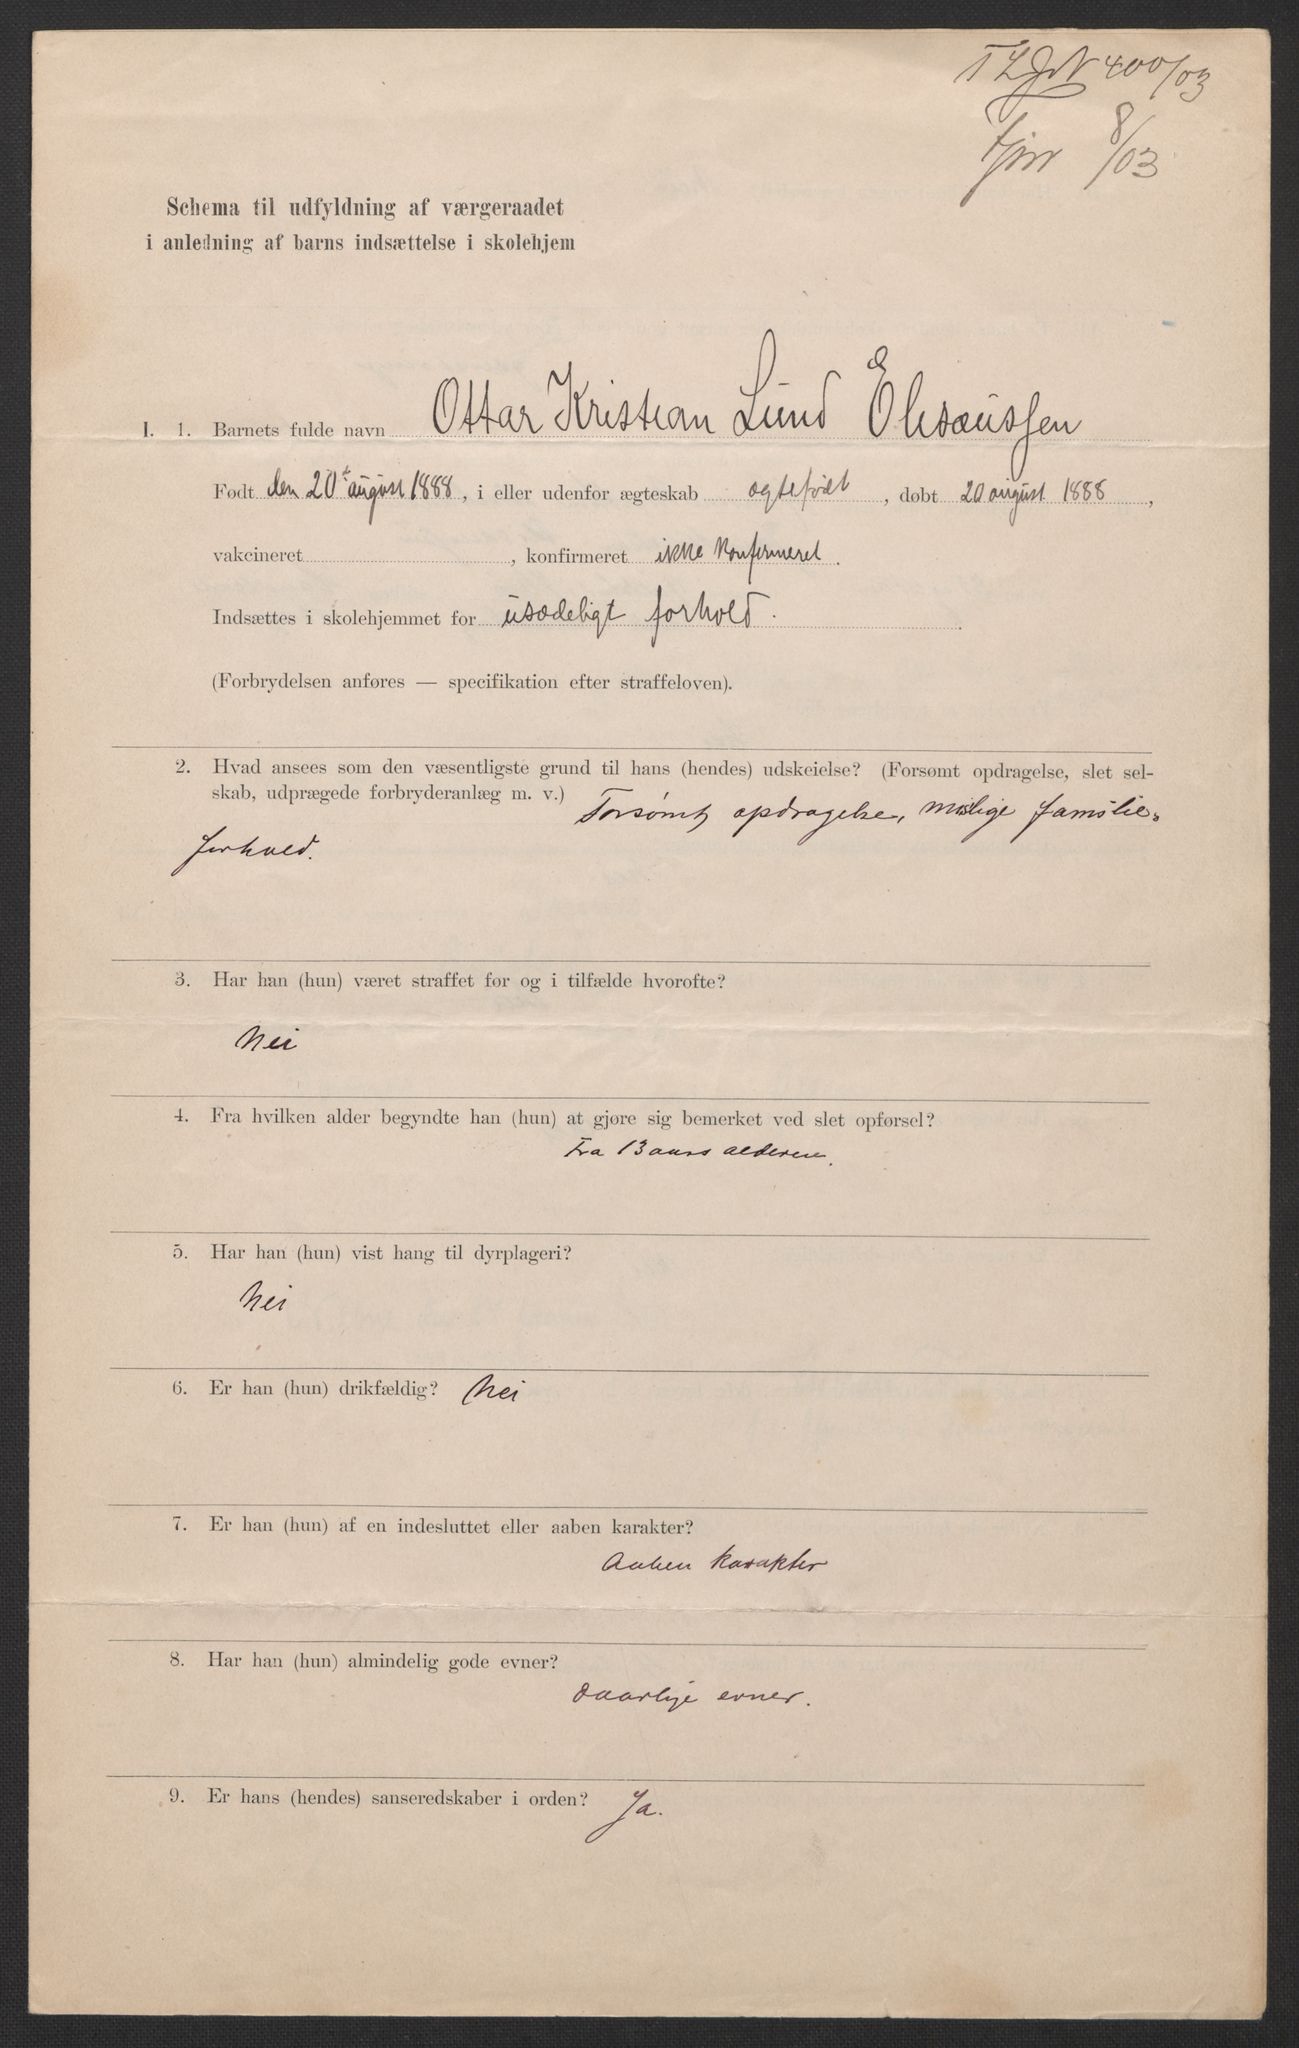 400/03
8/03
Schema til udfyldning af værgeraadet
i anledning af barns indsættelse i skolehjem
I. 1. Barnets fulde navn Ottar Kristian Lund Elisæussen
Født den 20de august 1888, i eller udenfor ægteskab ægtefødt, døbt 20 august 1888,
vakcineret , konfirmeret ikke konfirmeret.
Indsættes i skolehjemmet for usædeligt forhold.
(Forbrydelsen anføres — specifikation efter straffeloven).
2. Hvad ansees som den væsentligste grund til hans (hendes) udskeielse? (Forsømt opdragelse, slet sel-
skab, udprægede forbryderanlæg m. v.) Forsømt opdragelse, mislige familie-
forhold.
3. Har han (hun) været straffet før og i tilfælde hvorofte?
Nei
4. Fra hvilken alder begyndte han (hun) at gjøre sig bemerket ved slet opførsel?
Fra 13 aars alderen.
5. Har han (hun) vist hang til dyrplageri?
Nei
6. Er han (hun) drikfældig? Nei
7. Er han (hun) af en indesluttet eller aaben karakter?
Aaben karakter
8. Har han (hun) almindelig gode evner?
daarlige evner.
9. Er hans (hendes) sanseredskaber i orden? Ja.